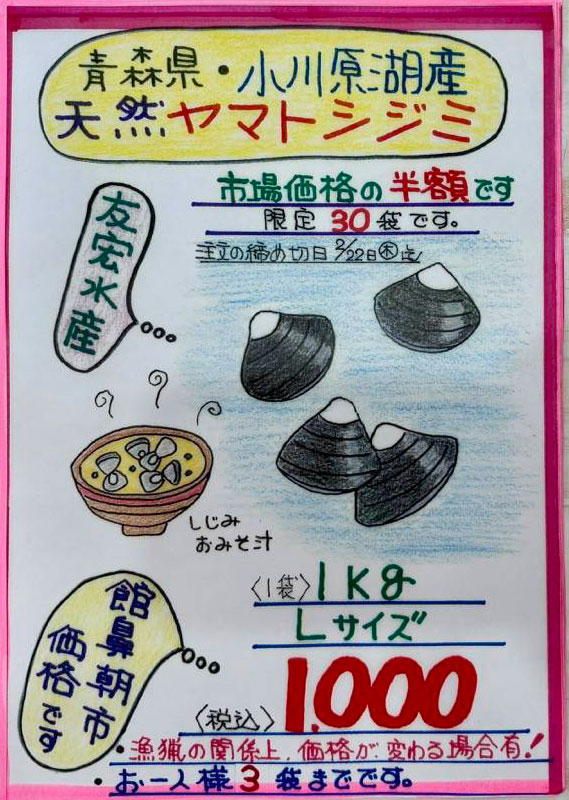 青森県・小川原湖産
天然ヤマトシジミ
市場価格の半額です
限定30袋です。
注文の締め切日2/22日㊍迄!
友宏水産
しじみ
おみそ汁
〈1袋〉1Kg
Lサイズ
館鼻朝市
価格です
〈税込〉1.000
・漁猟の関係上、価格が変わる場合有!
・お一人様3袋までです。